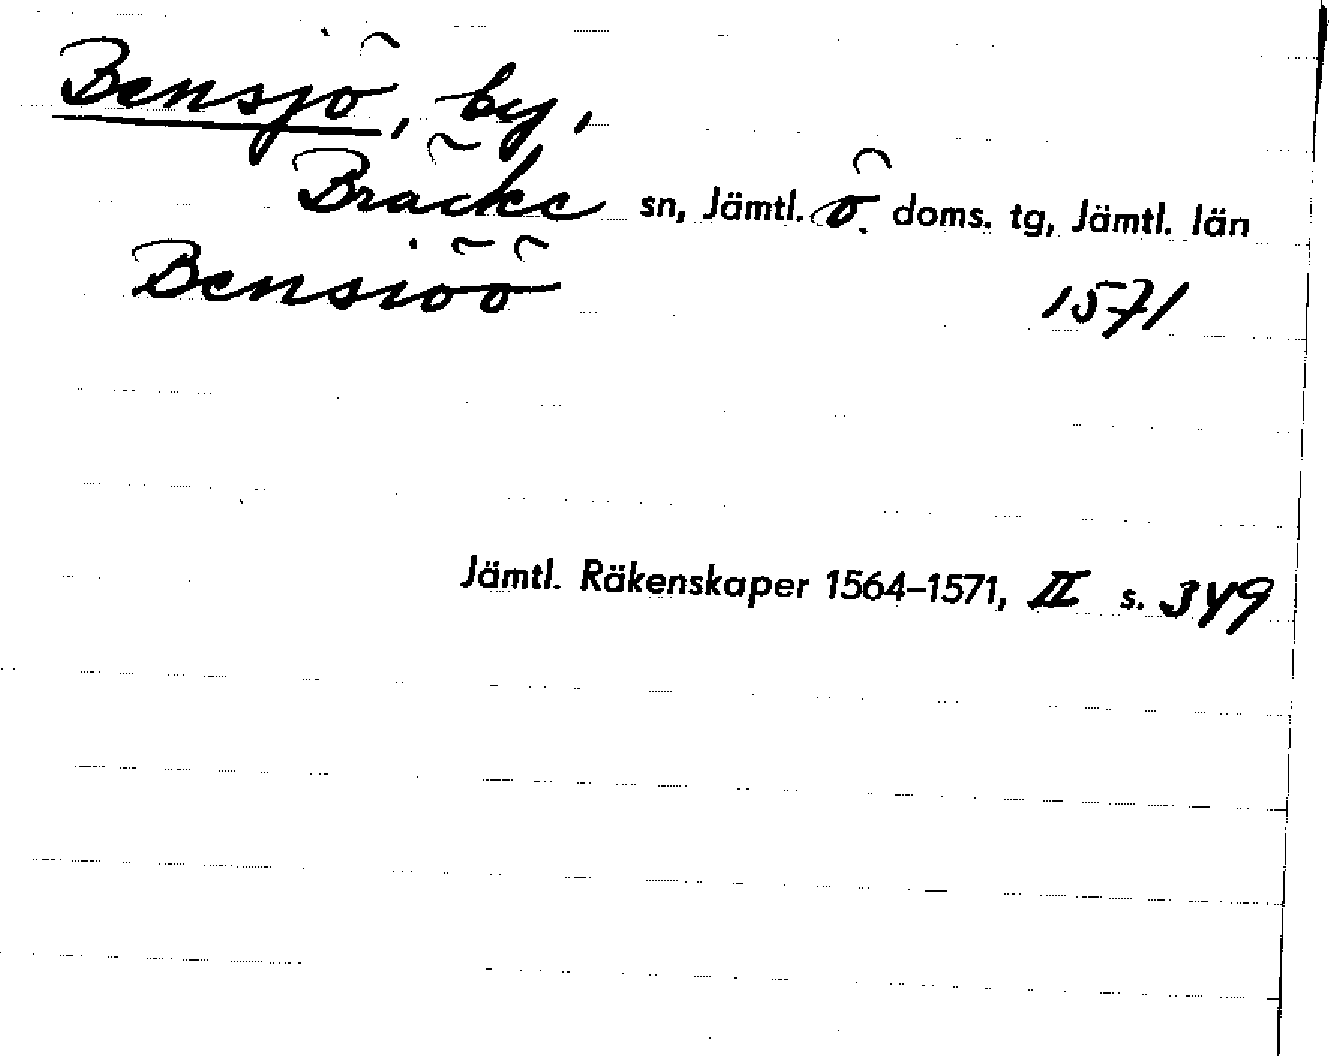 Bensjö, by,
Bräcke sn, Jämtl. ö. doms. tg, Jämtl. län
Bensiöö 1571
Jämtl. Räkenskaper 1564–1571, II s. 349